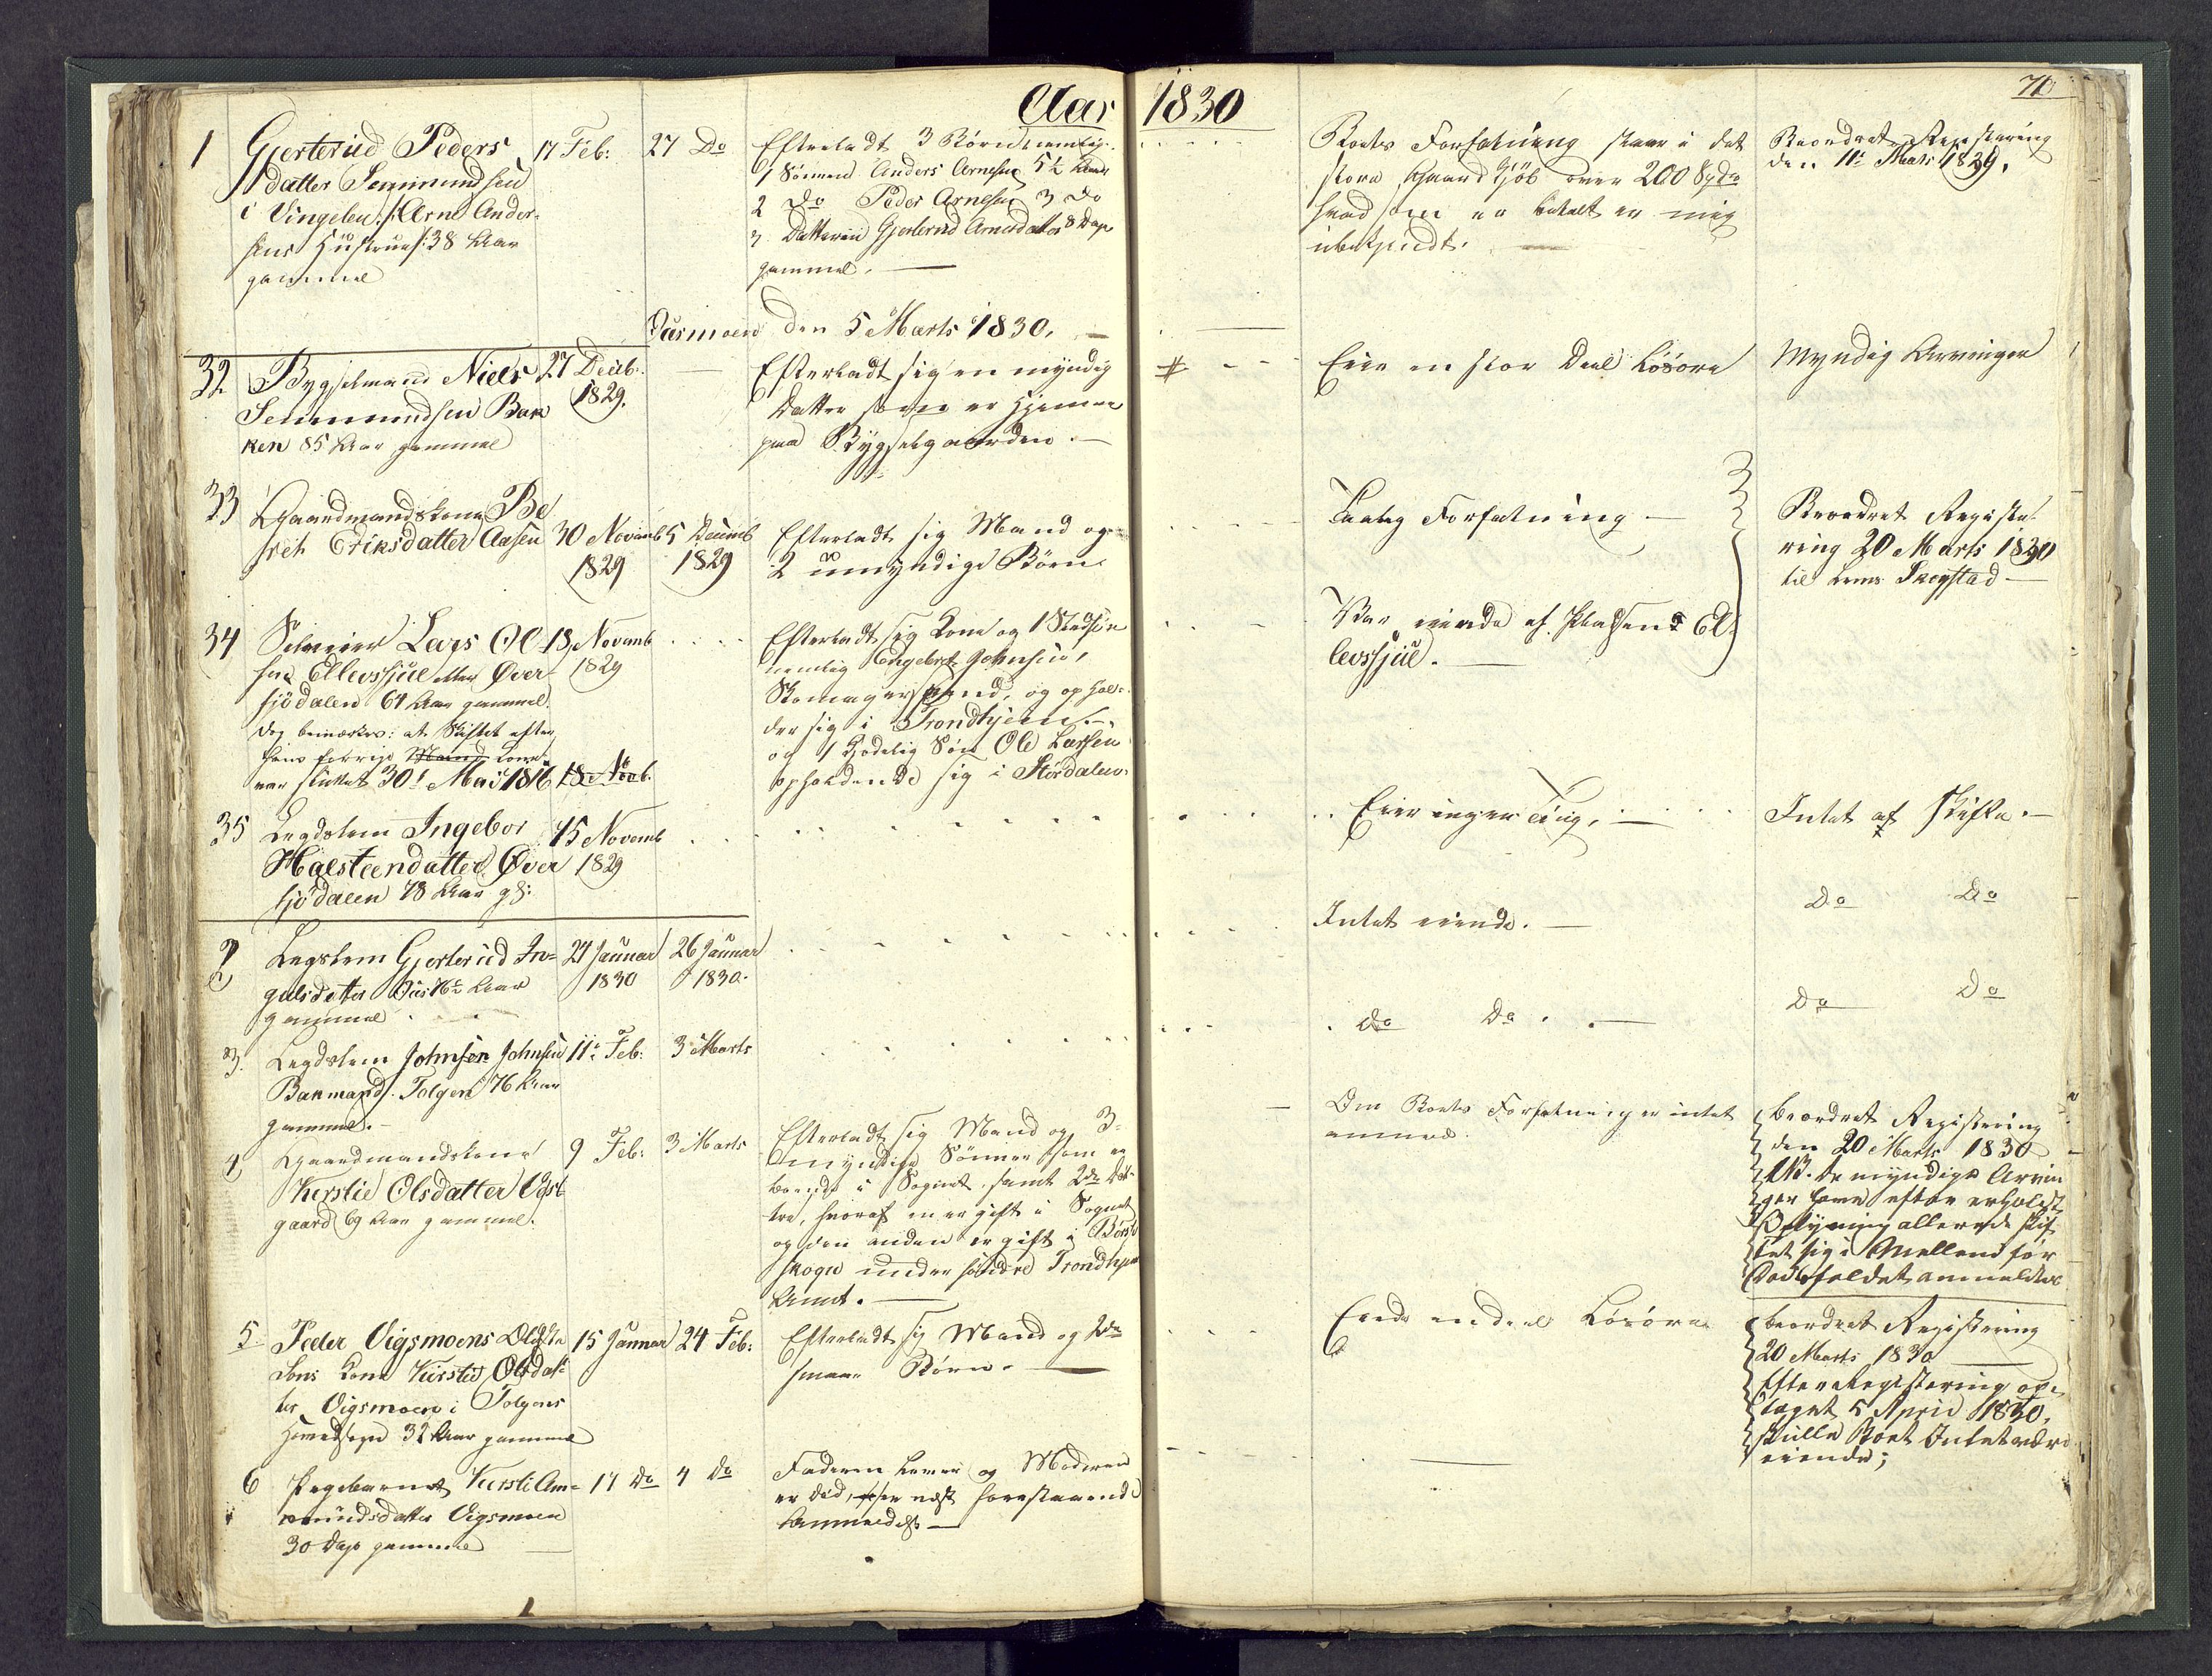 Aar 1830
70
1 Gjerterud Peders
datter Semmundsen
i Vingelen /: Arne Ander-
sens Hustrue :/ 38 Aar
gammel
17 Feb:
27 Do
Efterladt 3 Børn nemlig.
1 Sönnen Anders Arnesen 5½ Aar
2 Do Peder Arnesen 3 Do
3 Datteren Gjerterud Arnesdatter 8 Dage
gammel.
Boets Forfatning staar i det
store, Gaard Kjøb over 200 Spdr
hvad som er betalt er mig
ubekjendt.
Beordret Registering
den 11te Marts 1830.
Dusmoen den 5 Marts 1830.
32 Bygselmand Niels
Semmundsen Bak
ken 85 Aar gammel
27 Decb.
1829.
Efterladt sig en myndig
Datter som er hjemme
paa Bygselgaarden.
Eier en stor Deel Løsøre
Myndig Arvinger
33 Gaardmandskone Be
ret Eriksdatter Aasen
30 Novemb
1829
5 Decemb
1829
Efterladt sig Mand og
2 umyndige Børn
Forfatning
Beordret Registe-
ring 20 Marts 1830
til Skogstad
34 Selveier Lars Ol
sen Ellevssjül eller Øver
sjödalen 64 Aar gammel.
dog bemærkes: at Skiftet efter
hans forrige Mand Kone
var sluttet 30te Mai 1816
18 Novemb
1829
18 Novb.
Efterladt sig Kone og 1 Stedsön
nemlig Engebret Johnsen,
Skomagersvend, og ophol-
der sig i Trondhjem.
og 1 Kjødelig Søn Ole Larsen
opholdende sig i Stördalen.
Var eiende af Pladsen El-
levssjül.
35 Legdslem Ingebor
Halsteendatter Øver
sjödalen 78 Aar gl:
15 Novemb
1829
Eier ingen Ting.
Intet at skifte.
2 Legslem Gjerterud In-
galsdatter 76 Aar
gammel
24 Januar
1830
26 Januar
1830.
Intet eiende.
Do Do
3. Legdslem Johnsen Johnsen
Bakmand. Tolgen 76 Aar
gammel.
11te Feb:
3 Marts
do Do.
Do Do
4 Gaardmandskone
Kerstie Olsdatter Ögst
gaard 69 Aar gammel.
9 Feb:
3 Marts
Efterladt sig Mand og 3
myndige Sönner som er
boende i Sognet, samt 2de Döt-
tre, hvoraf en er gift i Sognet
og den anden er gift i Börse
skogn under söndre Trondhjem
Amt.
Om Boets Forfatning er intet
anmeldt.
beordret Registering
den 20 Marts 1830
NB. de myndige Arvin
ger have efter erholdt
Oplysning allerede skif
tet sig i Mellem för
Dødsfaldet anmeldtes
5 Peder Vigsmoens Ældste
Söns Kone Kirstie Olsdat
ter Vigsmoen i Tolgens
Hovedsogn 32 Aar gammel
15 Januar
24 Feb:
Efterladt sig Mand og 2de
smaae Børn.
Eiede endeel Løsøre
beordret Registering
20 Marts 1830
Efter Registering op-
taget 5 April 1830,
skulle Boet Intet være
eiende;
6 Pigebarnet Kirsti Am-
mundsdatter Vigsmoen
30 Dage gammel
17 Do
4 do
Faderen lever og Moderen
er död, see næst forestaaende
Anmeldelse